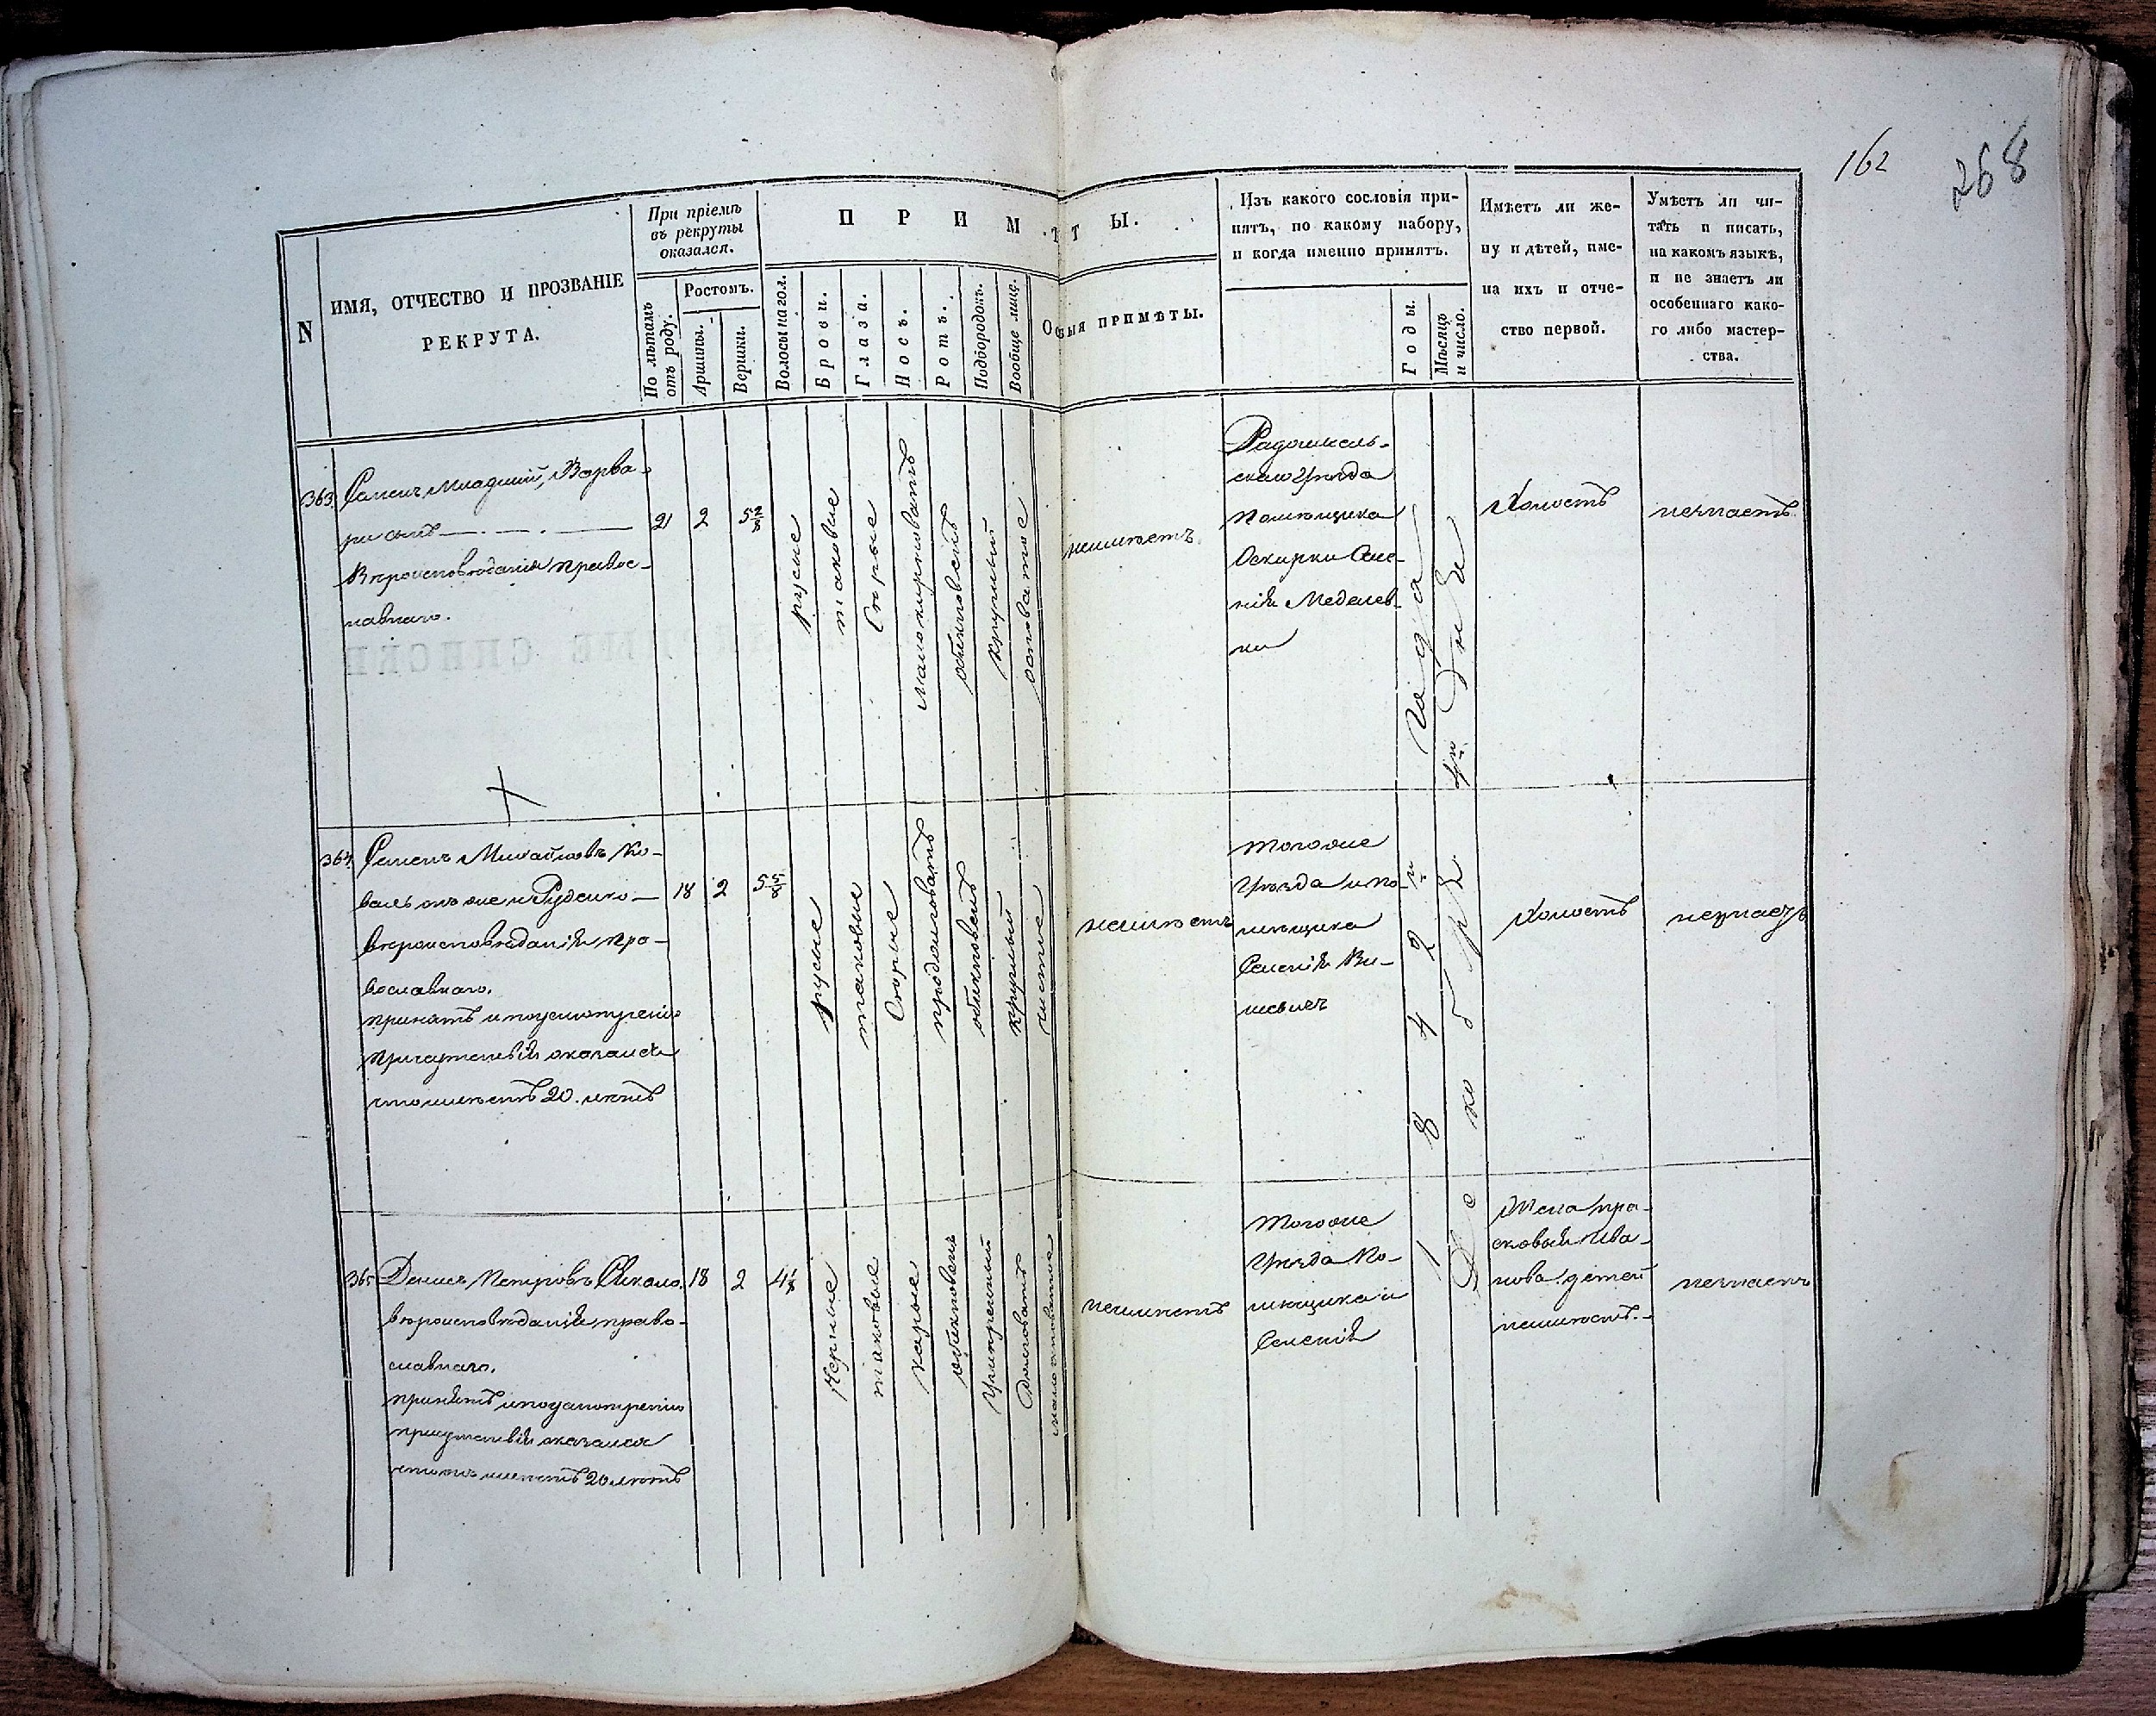 162
268
N
ИМЯ, ОТЧЕСТВО И ПРОЗВАНІЕ
РЕКРУТА.
При пріемѣ
въ рекруты
оказался.
По лѣтамъ
отъ роду.
Ростомъ.
Аршины.
Вершки.
П Р И М Ѣ Т Ы.
Волосы на гол.
Брови.
Глаза.
Носъ.
Ротъ.
Подбородокъ.
Вообще лице.
Особыя примѣты.
Изъ какого сословія при-
нятъ, по какому набору,
и когда именно принятъ.
Годы.
Мѣсяцъ
и число.
Имѣетъ ли же-
ну и дѣтей, име-
на ихъ и отче-
ство первой.
Умѣетъ ли чи-
тать и писать,
на какомъ языкѣ,
и не знаетъ ли
особеннаго како-
го либо мастер-
ства.
363.
Семенъ Младшій, Варва-
ри сынъ
Вѣроисповѣданія правос-
лавнаго.
21
2
5 2/8
русые
таковые
Сѣрые
Малокирповатъ
обыкновенъ
круглый
неимѣетъ
Радомысль-
скаго Уѣзда
Помѣщика
Холостъ
незнаетъ
364.
Семенъ Михайловъ Ко-
валь онъ же и Руденко
вѣроисповѣданія пра-
вославнаго.
принятъ и по усмотренію
присутствія оказался
что имѣетъ 20. лѣтъ
18
2
5 5/8
русые
таковые
Сѣрые
продолговатъ
обыкновенъ
круглый
чистое
неимѣетъ
Того же
Уѣзда по-
мѣщика
Холостъ
незнаетъ
365
Денисъ Петровъ
вѣроисповѣданія право-
славнаго.
принятъ и по усмотренію
присутствія оказался
что онъ имѣетъ 20 лѣтъ
18
2
Черные
таковые
карые
обыкновенъ
Умѣренный
неимѣетъ
Того же
Уѣзда По-
мѣщика
1842
года
Декабря
дня
Жена Пра-
сковья Ива-
нова. детей
неимѣетъ.
незнаетъ